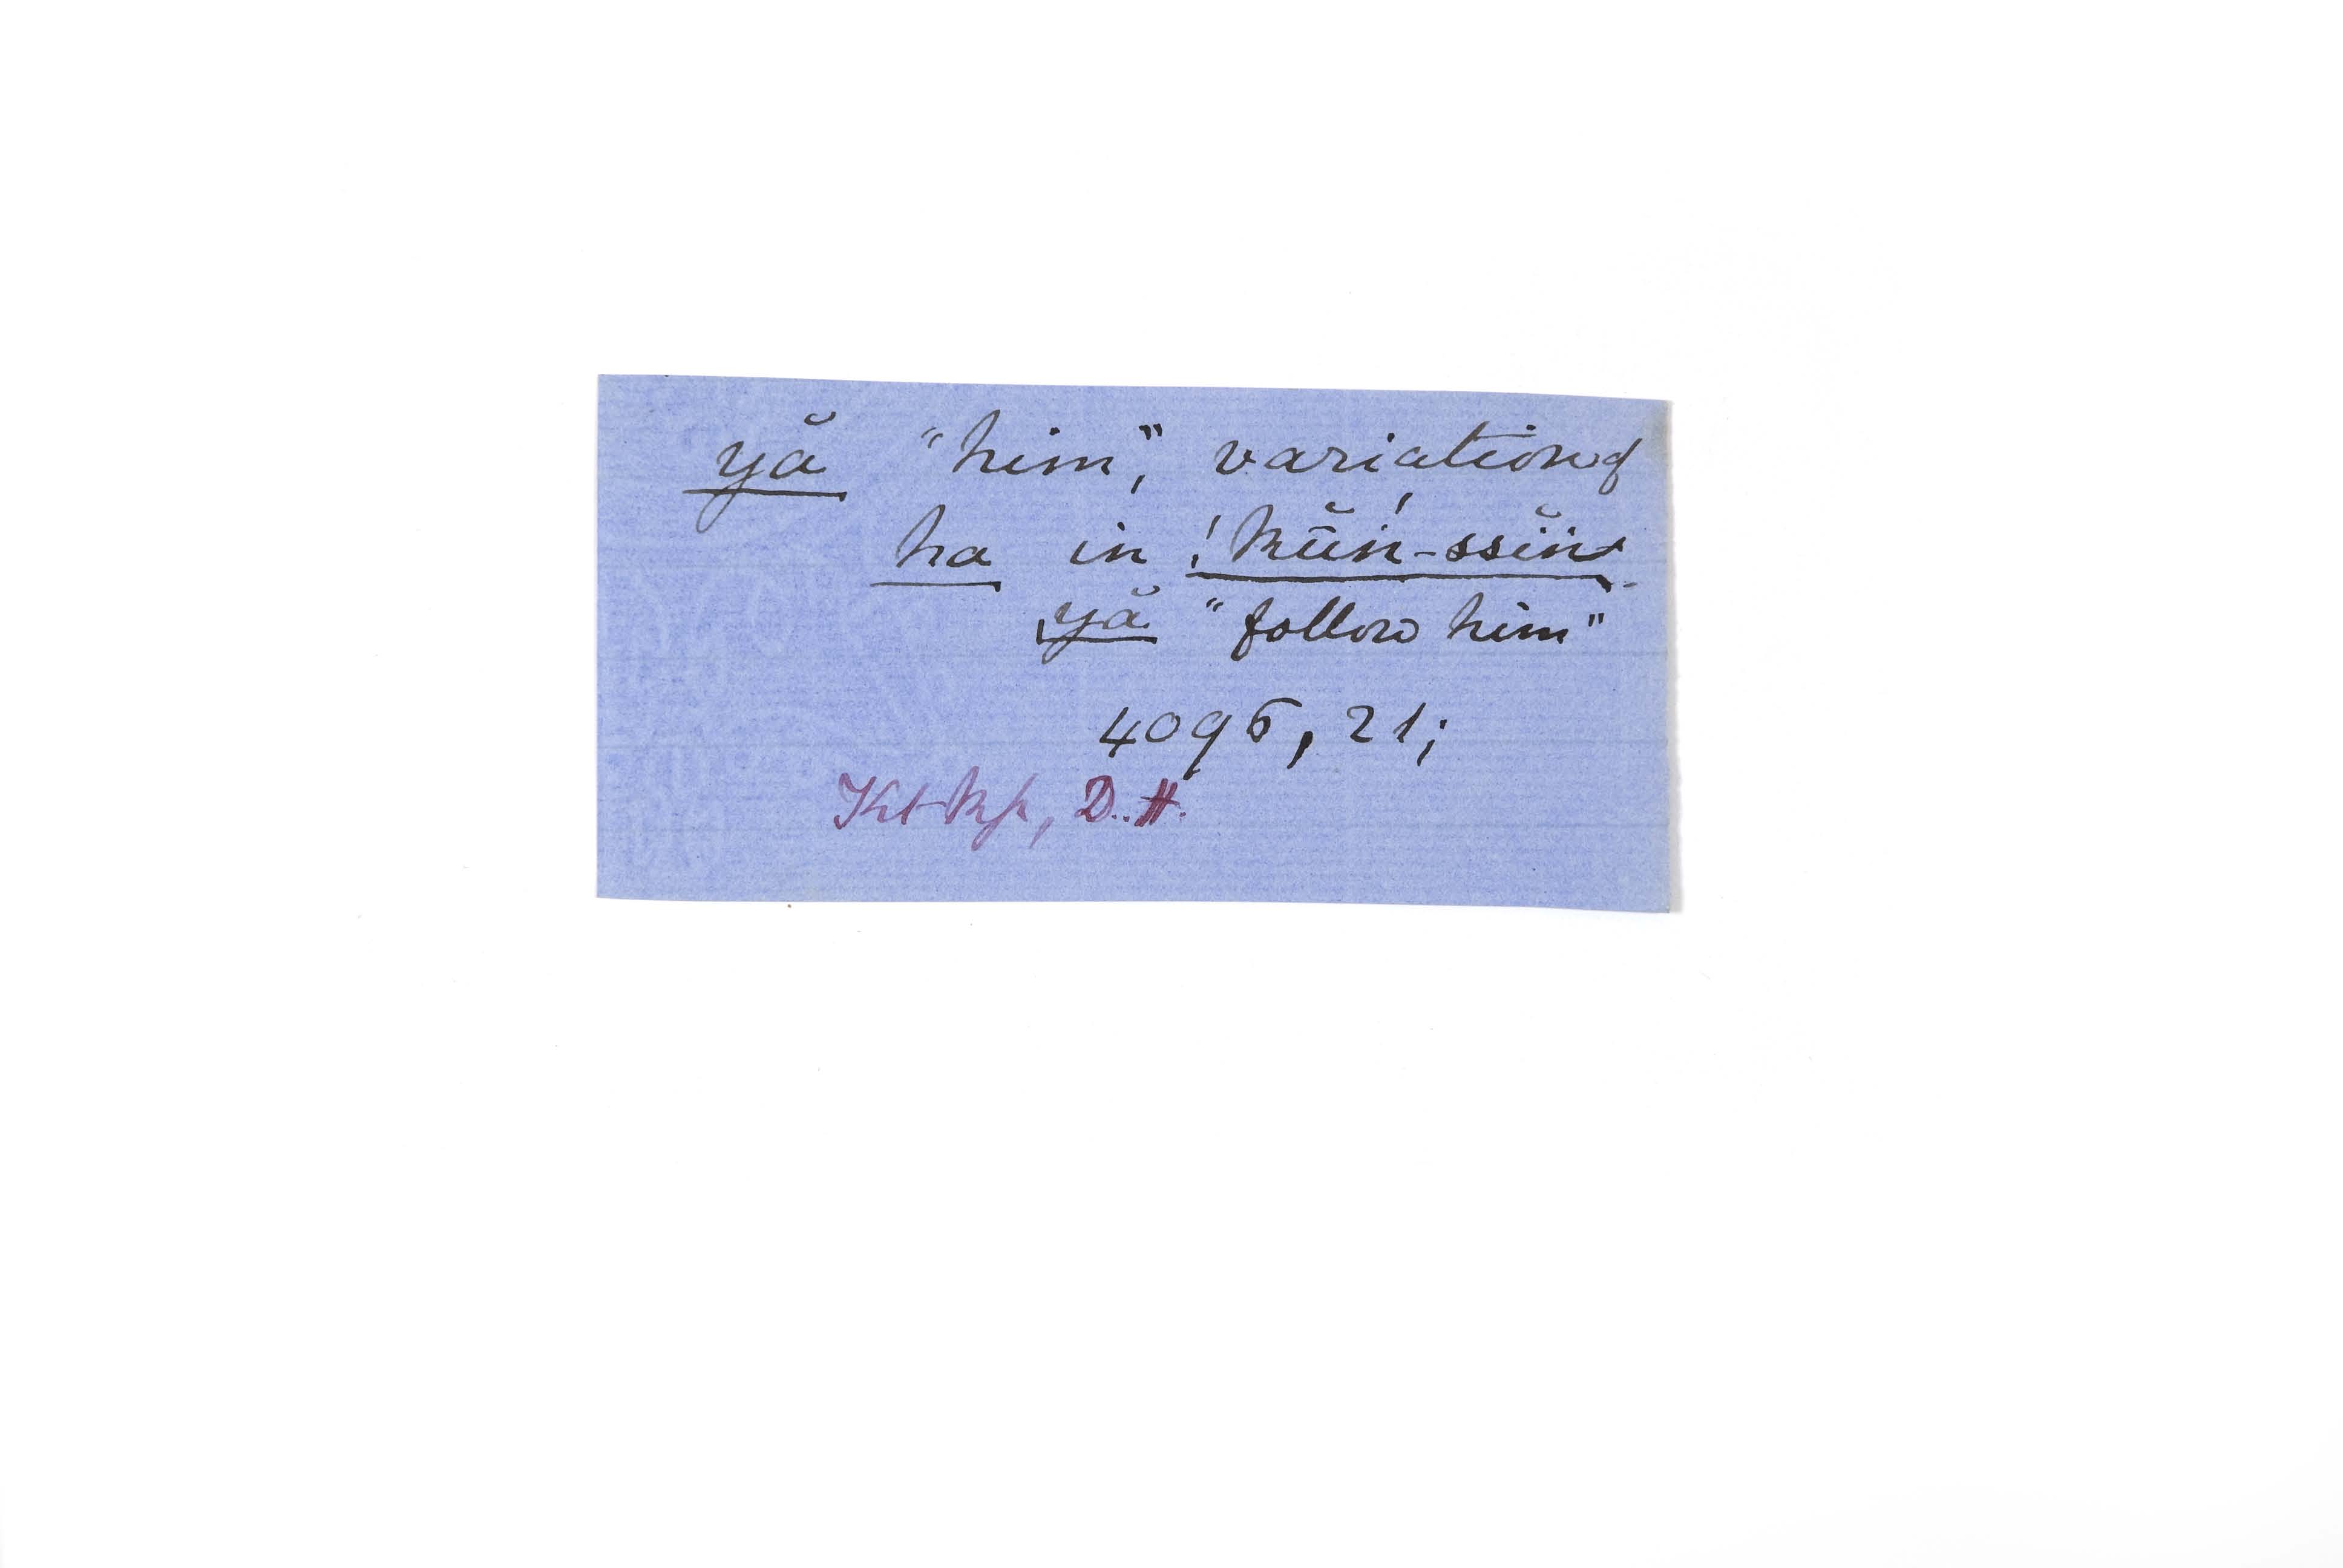 yă "him," variation of
ha in !k̆ūń-ssĭn
yă "follow him"
4096, 21;
D. H.